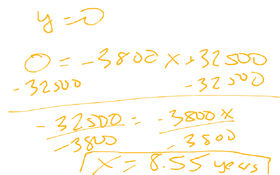 y = 0
0 = -3800x+32500
-32500 -32500
-32500 = -3800x
-3800 -3800
x = 8.55 years